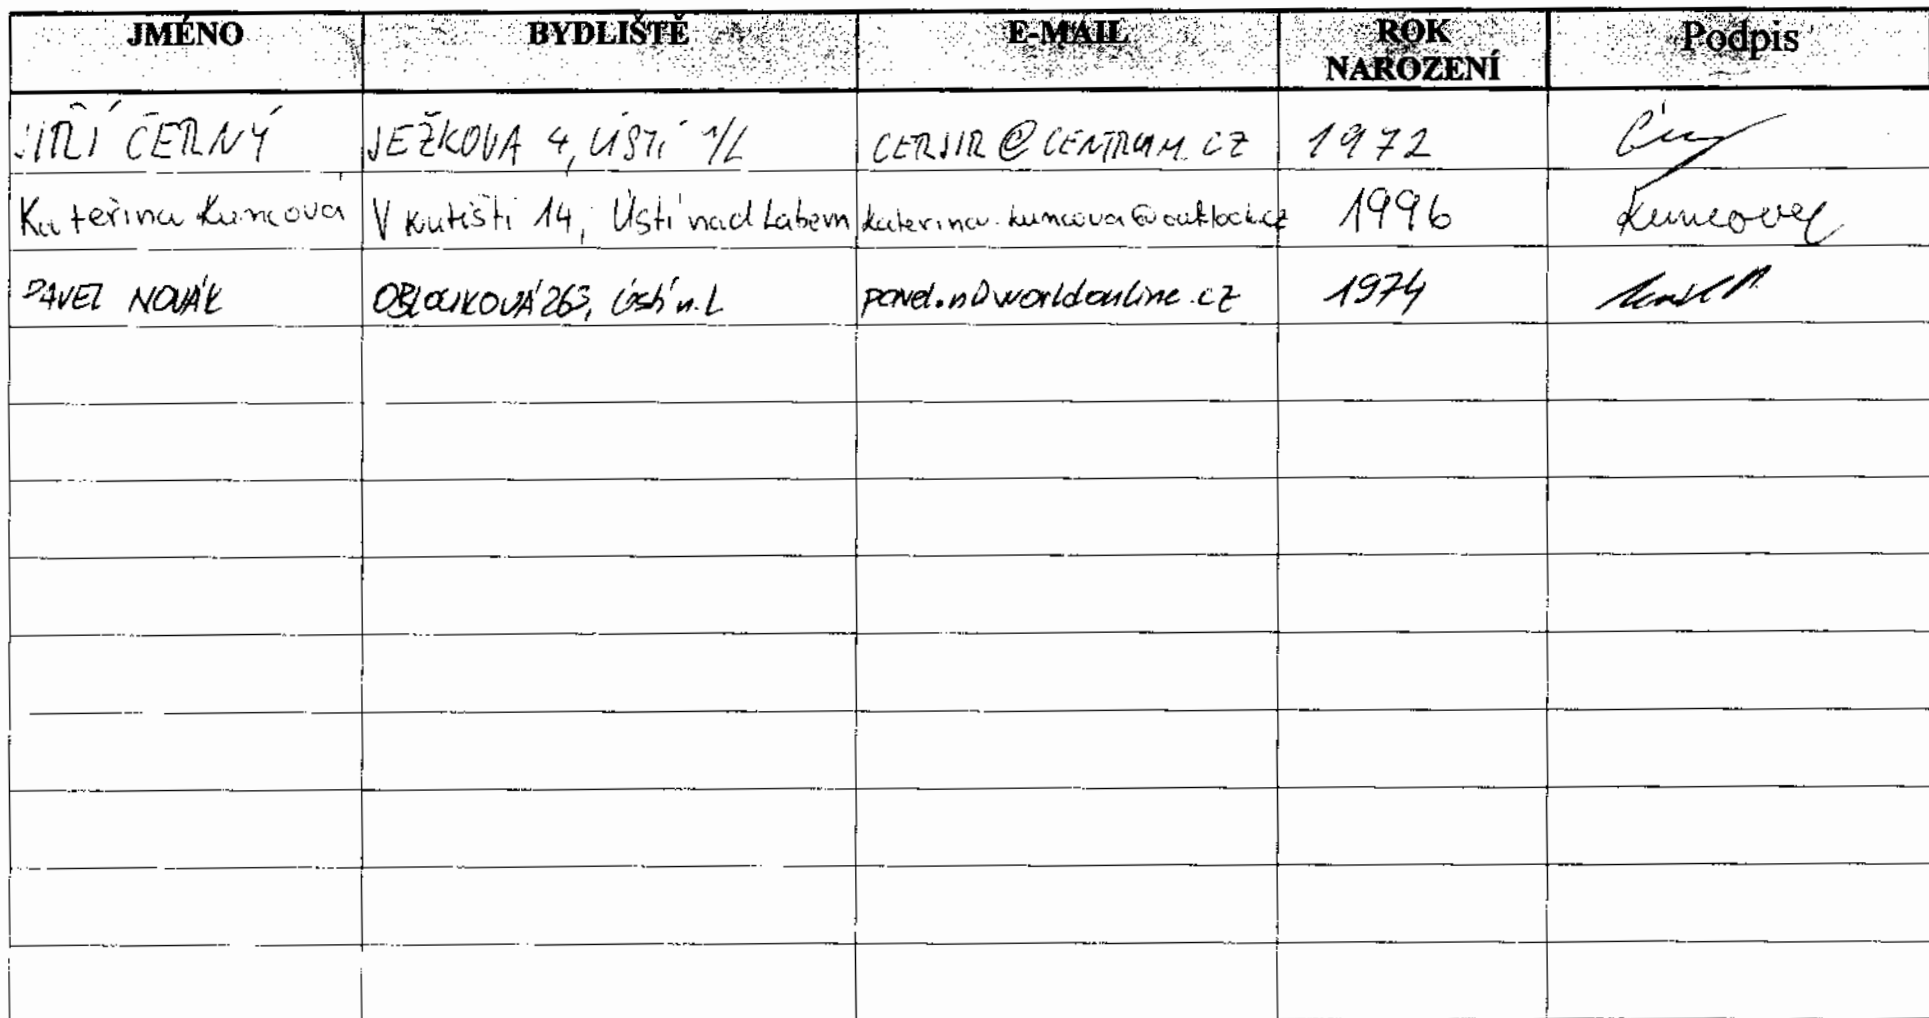 JMÉNO BYDLIŠTĚ E-MAIL ROK NAROZENÍ Podpis
JIŘÍ ČERNÝ JEŽKOVA 4, ÚSTÍ n/L CERJIR@CENTRUM.CZ 1972
Kateřina Kuncova V kutišti 14, Ústí nad Labem katerina.kuncova@outlook.cz 1996 Kuncova
PAVEL NOVÁK OBLOUKOVÁ 263, Ústí n.L pavel.n@worldonline.cz 1974